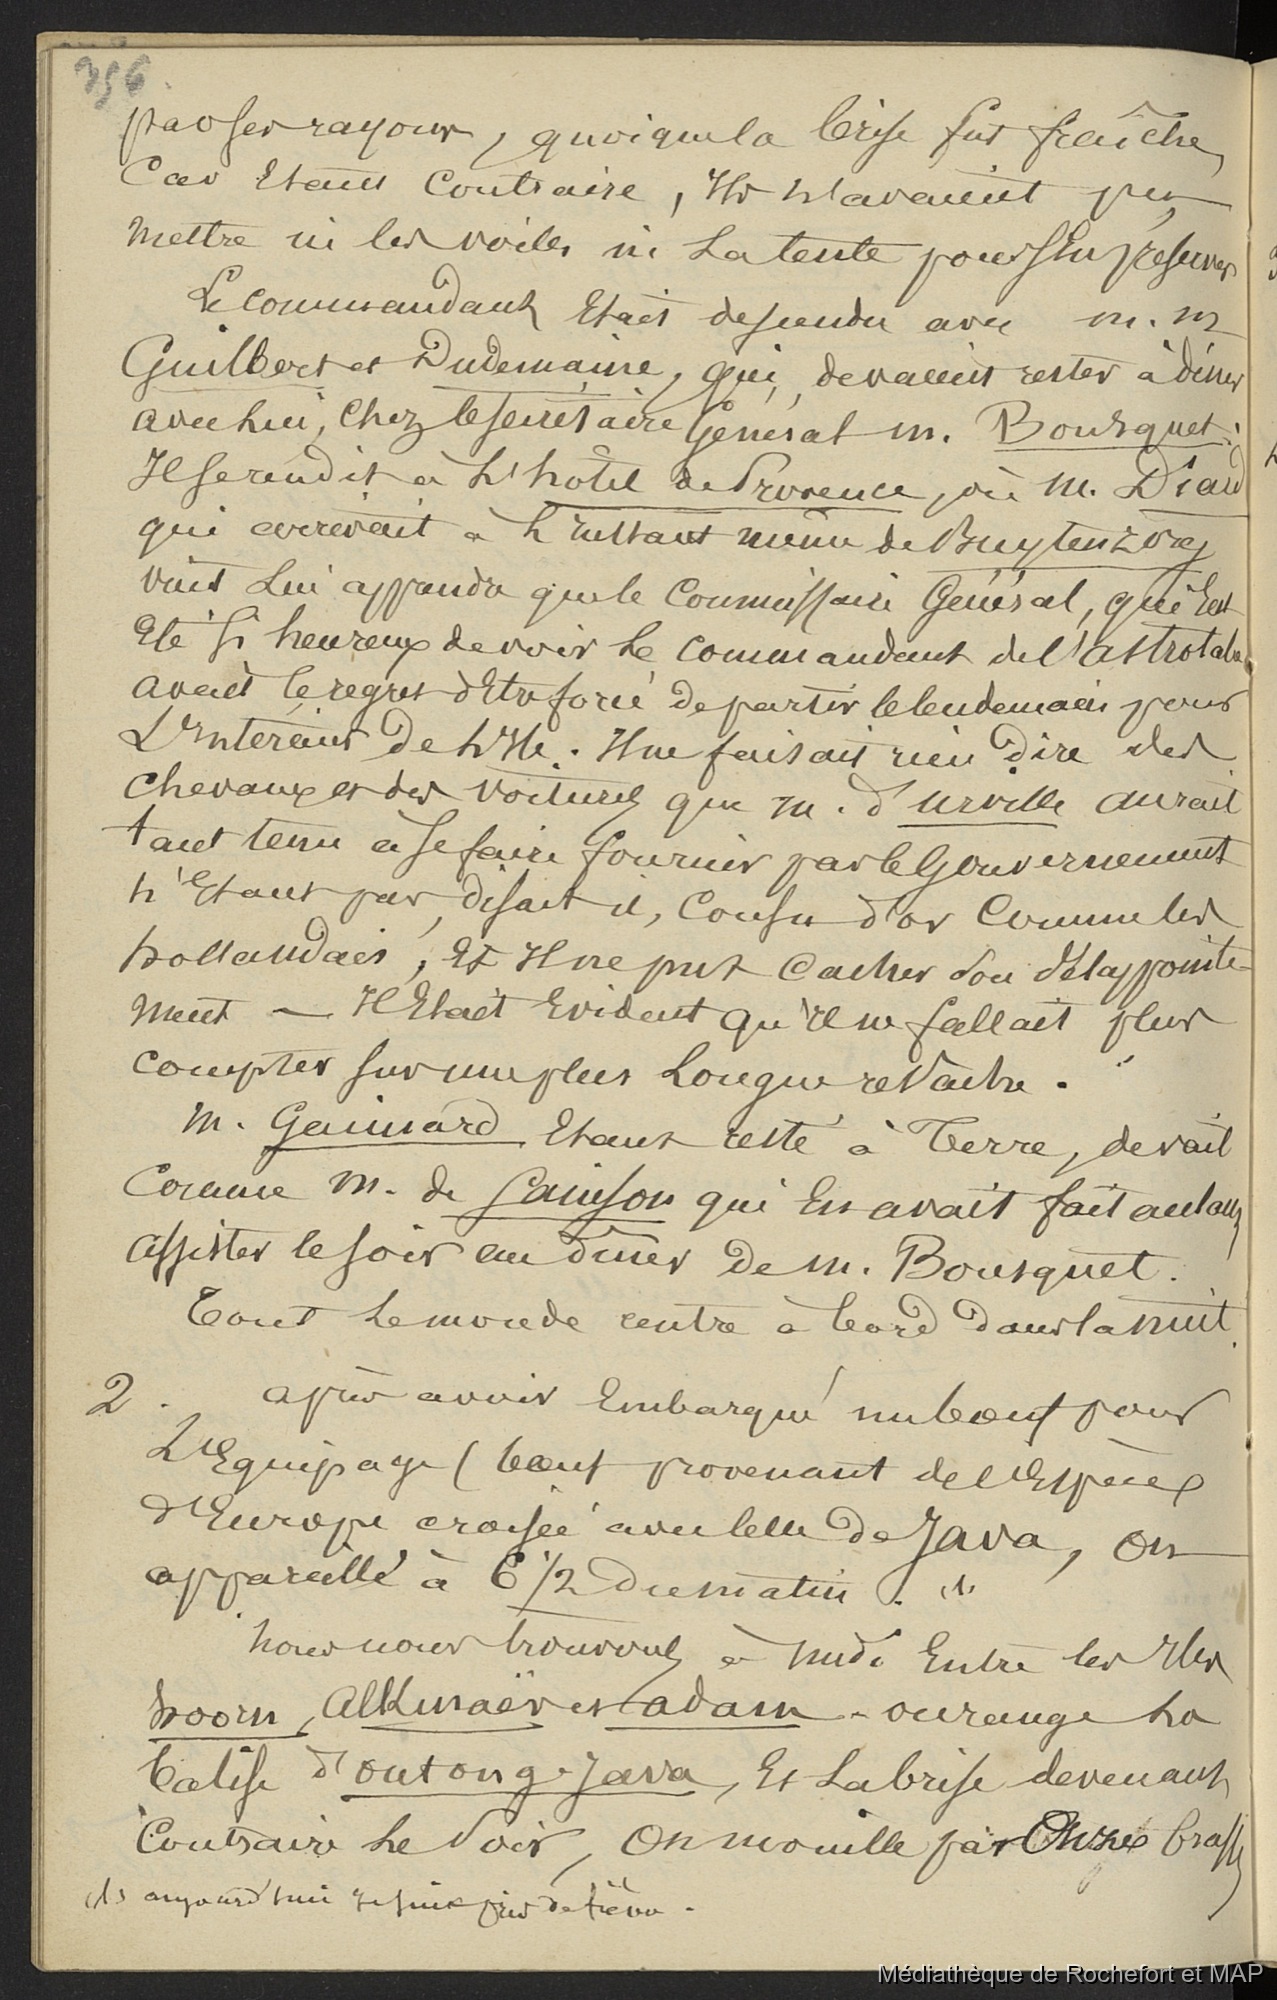 356.
par ses rayons, quoique la brise fut fraîche,
Car Etant Contraire, Ils n'avaient pu
mettre ni les voiles ni La tente pour s'En préserver
Le commandant Etait descendu avec m. m
Guilbert et Dudemaine, qui, devaient rester à dîner
avec lui, Chez le secrétaire Général m. Bousquet;
Il se rendit à L'hôtel de Provence, où M. Diard
qui arrivait à L'instant même de Buytenzorg
vint Lui apprendre que le Commissaire Général, qui Eut
Eté si heureux de voir Le Commandant de l'astrolabe
avait le regret d'Etre forcé de partir le lendemain pour
L'intérieur de L'Ile. Il ne faisait rien dire des
Chevaux et des voitures que m. d'urville aurait
tant tenu à se faire fournir par le Gouvernement
n'Etant pas, disait il, Cousu d'or Comme les
hollandais, Et Il ne put Cacher son désappointe-
ment — Il Etait Evident qu'il ne fallait plus
compter sur une plus Longue relâche.
M. Gaimard Etant resté à Terre, devait
Comme M. de Sainson qui En avait fait autant
assister le soir au dîner De m. Bousquet.
Tout Le monde rentre à bord dans la nuit.
2. après avoir Embarqué un boeuf pour
L'Equipage (boeuf provenant de l'Espèce
d'Europe croisée avec celle de Java, on
appareille à 6 1/2 du matin. (1)
Nous nous trouvons à midi Entre les Iles
hoorn, Alkmaër et adam - on range La
balise d'ontong-Java, Et La brise devenant
Contraire Le soir, On mouille par Onze brasses
(1) aujourd'hui je suis pris de fièvre.
Médiathèque de Rochefort et MAP